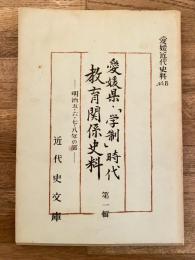 愛媛近代史料 No.8
愛媛県「学制」時代
教育関係史料
第一輯
—明治五・六・七・八年の部—
近代史文庫